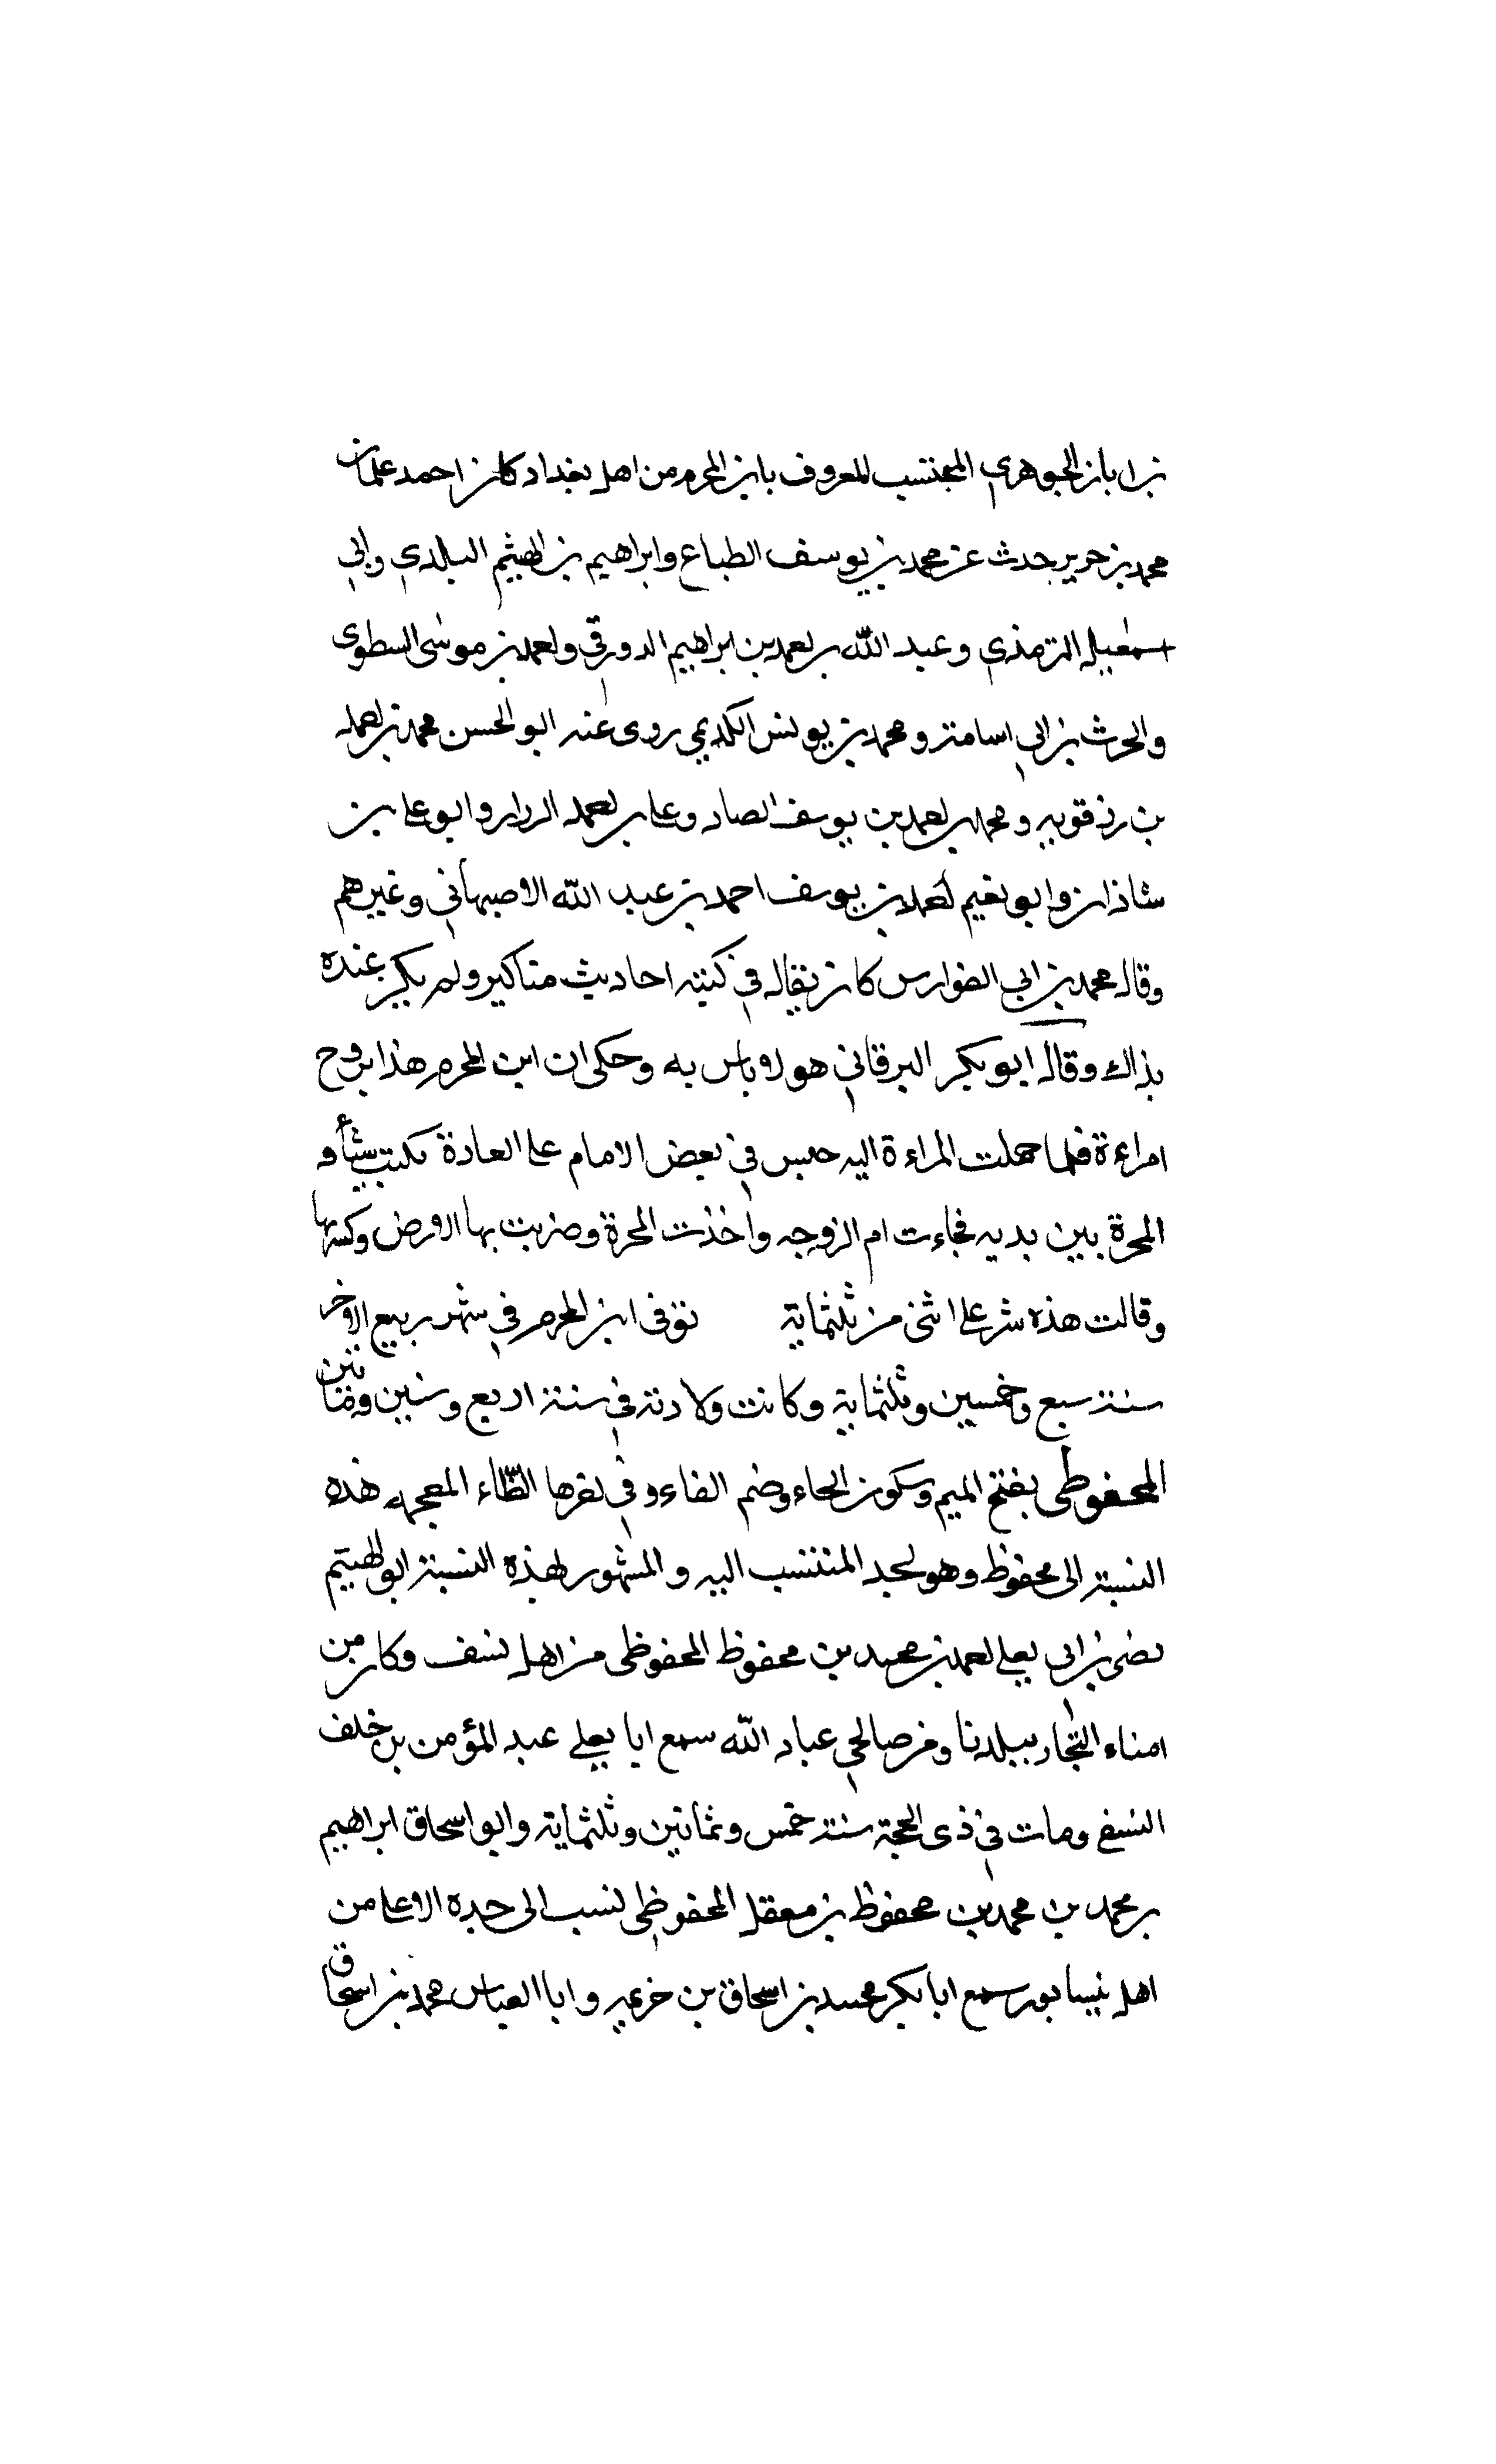 بن ابان الجوهري المجنتسب المعروف بابن المحرم من اهل بغداد كان احمد غلمان
محمد بن جرير حدث عن محمد بن يوسف الطباع وابراهيم بن الهيثم البلدي وابي
اسمعيل الترمذي وعبد الله بن احمد بن ابراهيم الدورقي واحمد بن موسى السطوى
والحرث بن ابي اسامة ومحمد بن يونس الكديمي روى عنه ابو الحسن محمد بن احمد
بن رزقويه ومحمد بن احمد بن يوسف الصاد وعلى بن احمد الرزاز وابو على بن
شاذان وابو نعيم احمد بن يوسف احمد بن عبد الله الاصبهاني وغيرهم
وقال محمد بن ابي الفوارس كان يقال في كتبه احاديث مناكير ولم يكن عنده
بذاك وقال ابو بكر البرقاني هو لا باس به وحكى ان ابن المحرم هذا تزوج
امراءة فلما حملت المراءة اليه جلس في بعض الايام على العادة يكتب شيأ و
المحبرة بين يديه فجاءت ام الزوجه واخذت المحبرة وضربت بها الارض وكسرتها
وقالت هذه شر على ابنتي من ثلثماية توفى ابن المحرم في شهر ربيع الاخر
سنة سبع وخمسين وثلثماية وكانت ولادته في سنة اربع وستين ومائتين
المحفوظى بفتح الميم وسكون الحاء وضم الفاء وفي اخرها الظاء المعجمه هذه
النسبة الى محفوظ وهو لجد المنتسب اليه والمشهور بهذه النسبة ابو الهيثم
نصر بن ابي يعلى احمد بن محمد بن محفوظ المحفوظى من اهل نسف وكان من
امناء التجار ببلدنا ومن صالحي عباد الله سمع ابا يعلى عبد المؤمن بن خلف
النسفي ومات في ذى الحجة سنة خمس وثمانين وثلثماية وابو اسحاق ابراهيم
بن محمد بن محمد بن محفوظ بن معقل المحفوظي نسب الى جده الاعلى من
اهل نيسابور سمع ابا بكر محمد بن اسحاق بن خزيمه وابا العباس محمد بن اسحاق